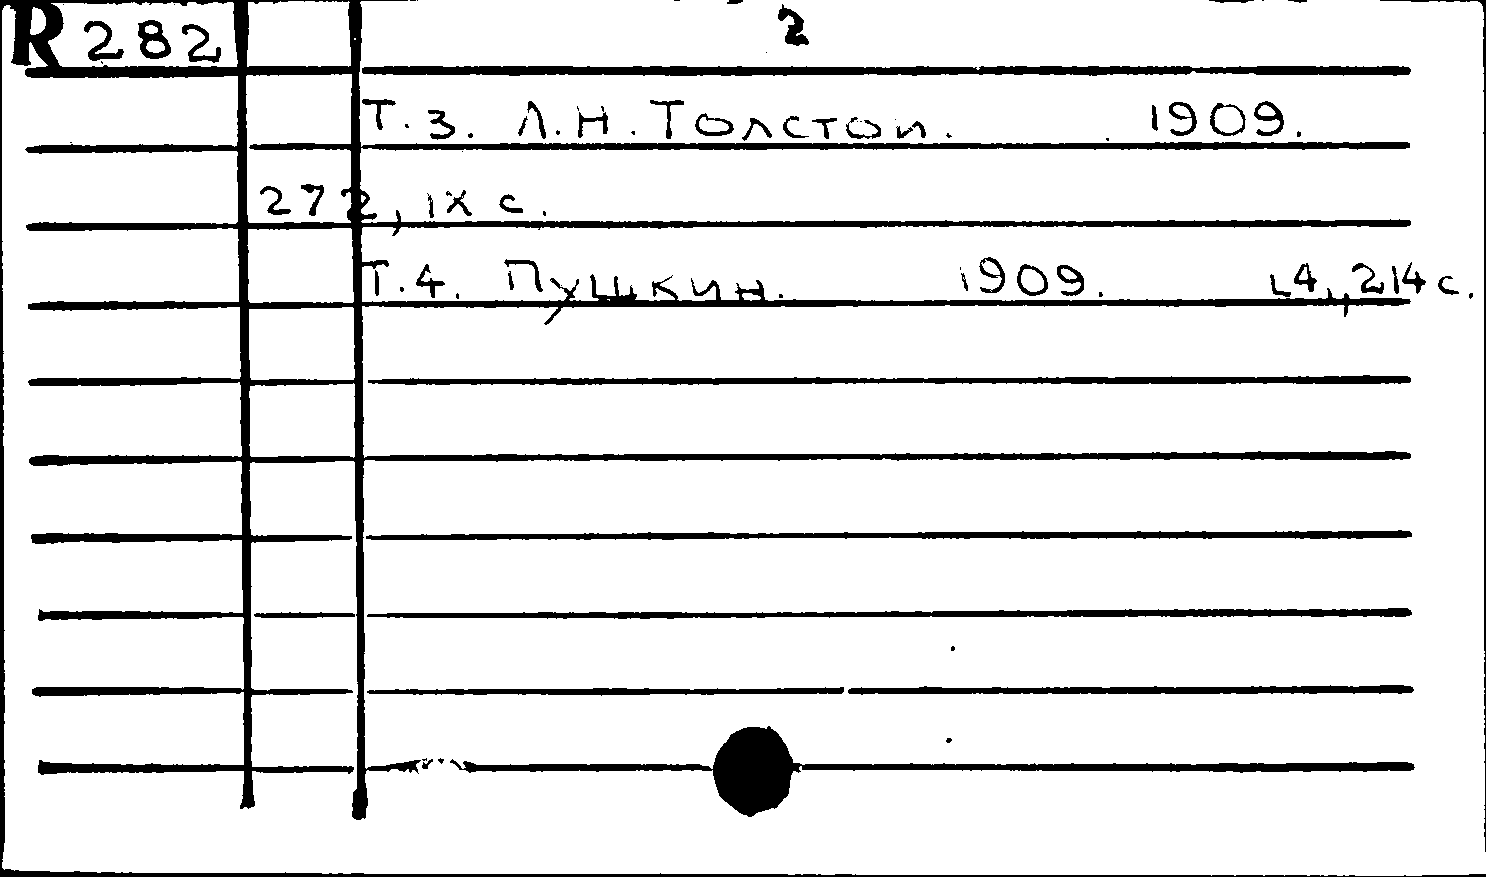 R 282 2
Т. 3. Л. Н. Толстои. 1909.
272, IX с.
Т. 4. Пушкин. 1909. 214 с.